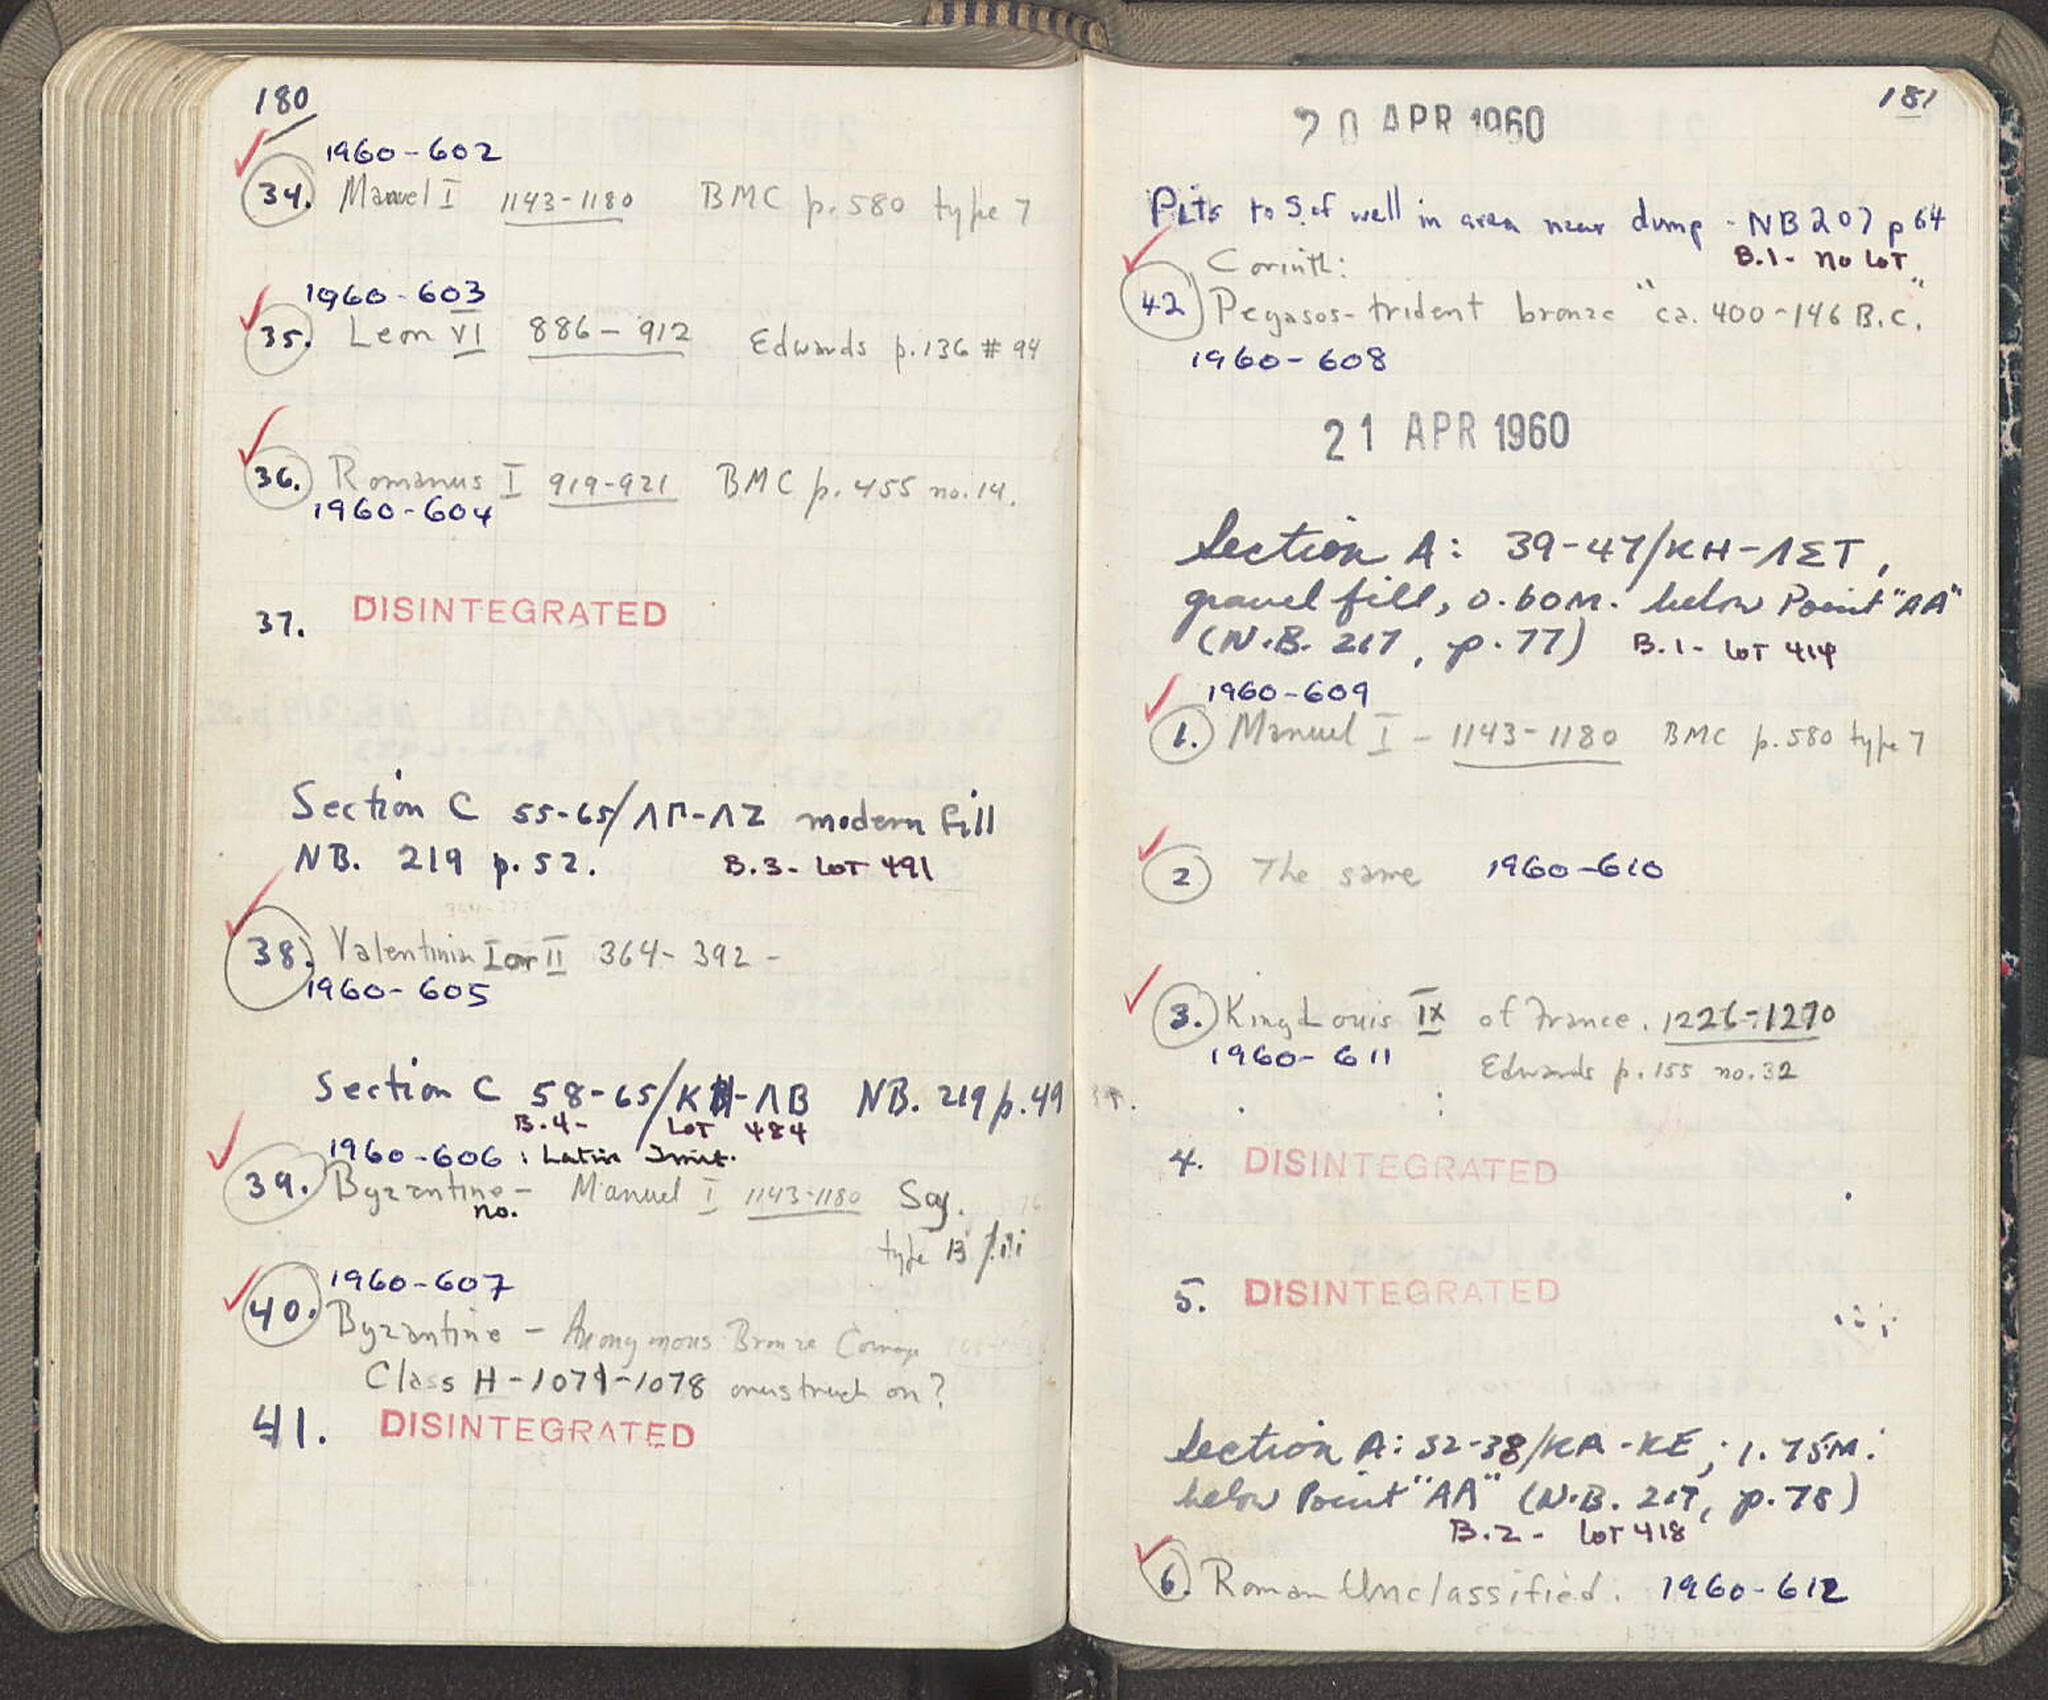 180
1960-602
34. Manuel I 1143-1180 BMC p. 580 type 7
1960-603
35. Leon VI 886-912 Edwards p. 136 # 94
36. Romanus I 919-921 BMC p. 455 no. 14.
1960-604
37. DISINTEGRATED
Section C 55-65/ΛΓ-ΛΖ modern fill
NB. 219 p. 52. B.3- LOT 491
38. Valentinian I or II 364-392 -
1960-605
Section C 58-65/KH-ΛB NB. 219 p. 49
B.4- LOT 484
1960-606 : Latin Imit.
39. Byzantine - Manuel I 1143-1180
no.
type B
1960-607
40. Byzantine - Anonymous Bronze Coinage
Class H - 1071-1078 overstruck on?
41. DISINTEGRATED
181
20 APR 1960
Pits to S. of well in area near dump - NB 207 p 64
B.1- no LOT
Corinth:
42 Pegasos-trident bronze "ca. 400-146 B.C."
1960-608
21 APR 1960
Section A: 39-47/KH-ΛΣΤ,
gravel fill, 0.60M. below Point "AA"
(N.B. 217, p. 77) B.1- LOT 414
1960-609
1. Manuel I - 1143-1180 BMC p. 580 type 7
2 The same 1960-610
3. King Louis IX of France. 1226-1270
1960-611
Edwards p. 155 no. 32
4. DISINTEGRATED
5. DISINTEGRATED
Section A: 32-38/KA-KE; 1.75M.
below Point "AA" (N.B. 217, p. 78)
B.2- LOT 418
6. Roman Unclassified. 1960-612